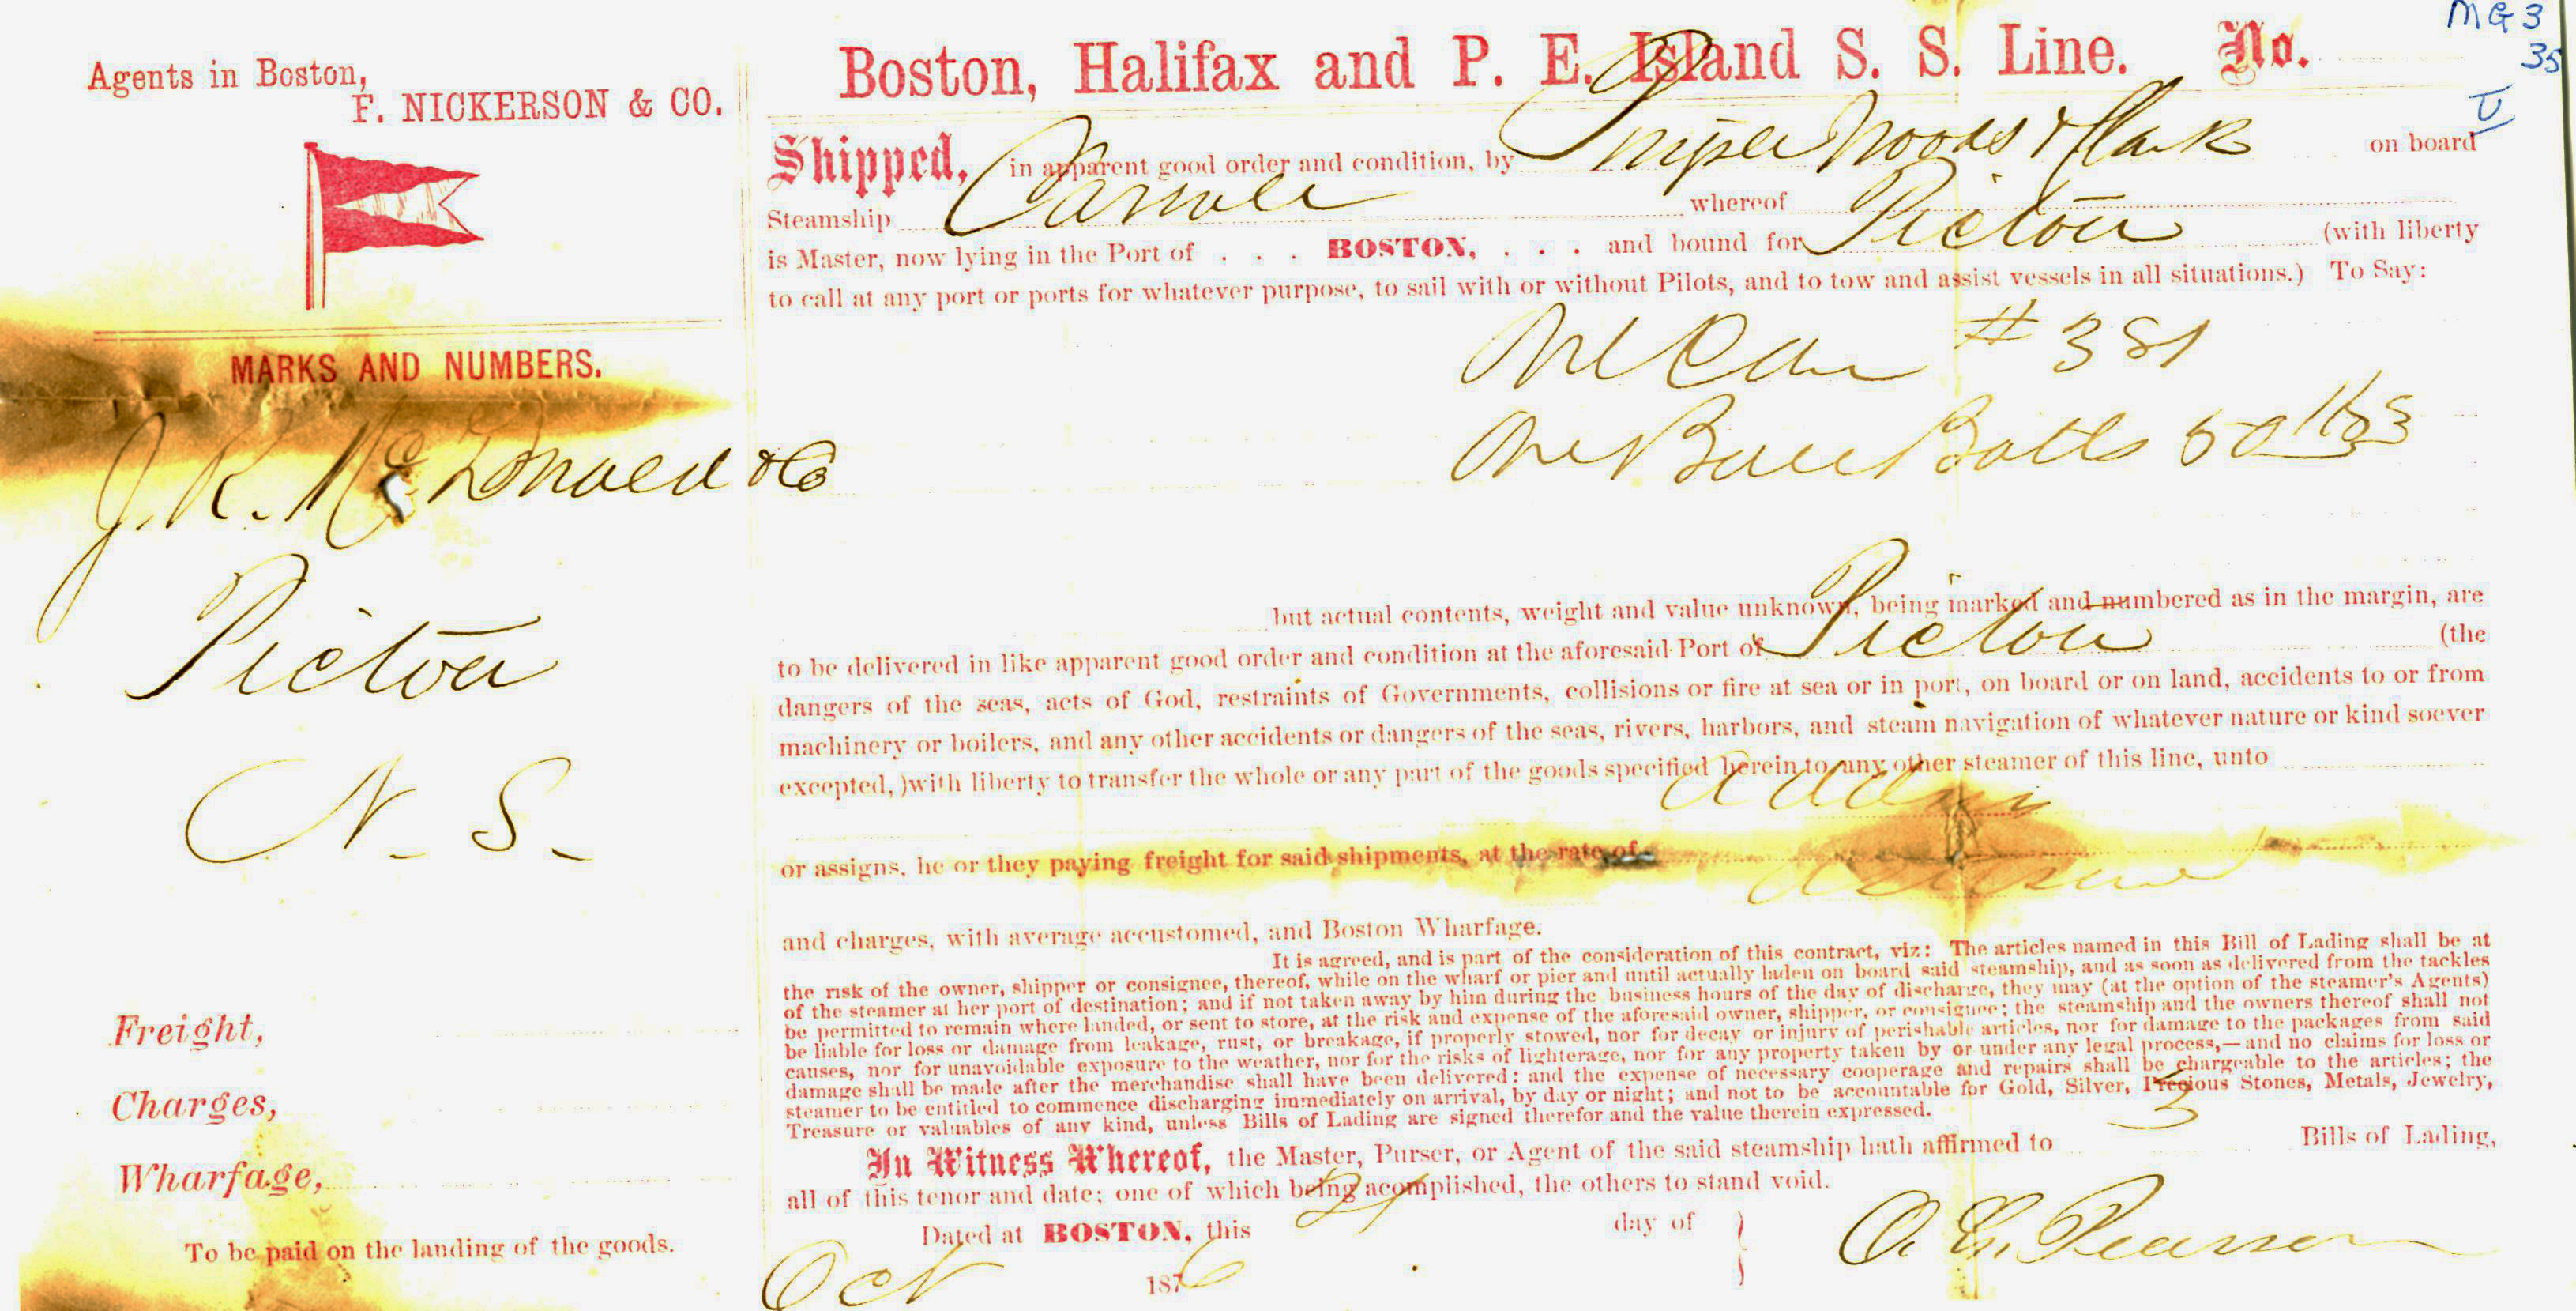 MG 3
35
Agents in Boston,
F. NICKERSON & CO.
MARKS AND NUMBERS.
J. R. McDonald & Co
Pictou
N. S.
Freight,
Charges,
Wharfage,
To be paid on the landing of the goods.
Boston, Halifax and P. E. Island S. S. Line. No.
Shipped, in apparent good order and condition, by Woods & Clark on board
Steamship Carroll whereof
is Master, now lying in the Port of . . . BOSTON, . . . and bound for Pictou (with liberty
to call at any port or ports for whatever purpose, to sail with or without Pilots, and to tow and assist vessels in all situations.) To Say:
One # 381
One Bolts 50 lbs
but actual contents, weight and value unknown, being marked and numbered as in the margin, are
to be delivered in like apparent good order and condition at the aforesaid Port of Pictou (the
dangers of the seas, acts of God, restraints of Governments, collisions or fire at sea or in port, on board or on land, accidents to or from
machinery or boilers, and any other accidents or dangers of the seas, rivers, harbors, and steam navigation of whatever nature or kind soever
excepted,)with liberty to transfer the whole or any part of the goods specified herein to any other steamer of this line, unto
or assigns, he or they paying freight for said shipments, at the rate of
and charges, with average accustomed, and Boston Wharfage.
It is agreed, and is part of the consideration of this contract, viz: The articles named in this Bill of Lading shall be at
the risk of the owner, shipper or consignee, thereof, while on the wharf or pier and until actually laden on board said steamship, and as soon as delivered from the tackles
of the steamer at her port of destination; and if not taken away by him during the business hours of the day of discharge, they may (at the option of the steamer's Agents)
be permitted to remain where landed, or sent to store, at the risk and expense of the aforesaid owner, shipper, or consignee; the steamship and the owners thereof shall not
be liable for loss or damage from leakage, rust, or breakage, if properly stowed, nor for decay or injury of perishable articles, nor for damage to the packages from said
causes, nor for unavoidable exposure to the weather, nor for the risks of lighterage, nor for any property taken by or under any legal process,—and no claims for loss or
damage shall be made after the merchandise shall have been delivered: and the expense of necessary cooperage and repairs shall be chargeable to the articles; the
steamer to be entitled to commence discharging immediately on arrival, by day or night; and not to be accountable for Gold, Silver, Precious Stones, Metals, Jewelry,
Treasure or valuables of any kind, unless Bills of Lading are signed therefor and the value therein expressed.
In Witness Whereof, the Master, Purser, or Agent of the said steamship hath affirmed to 3 Bills of Lading,
all of this tenor and date; one of which being acomplished, the others to stand void.
Dated at BOSTON, this 21 day of
Oct 1876
Pearson